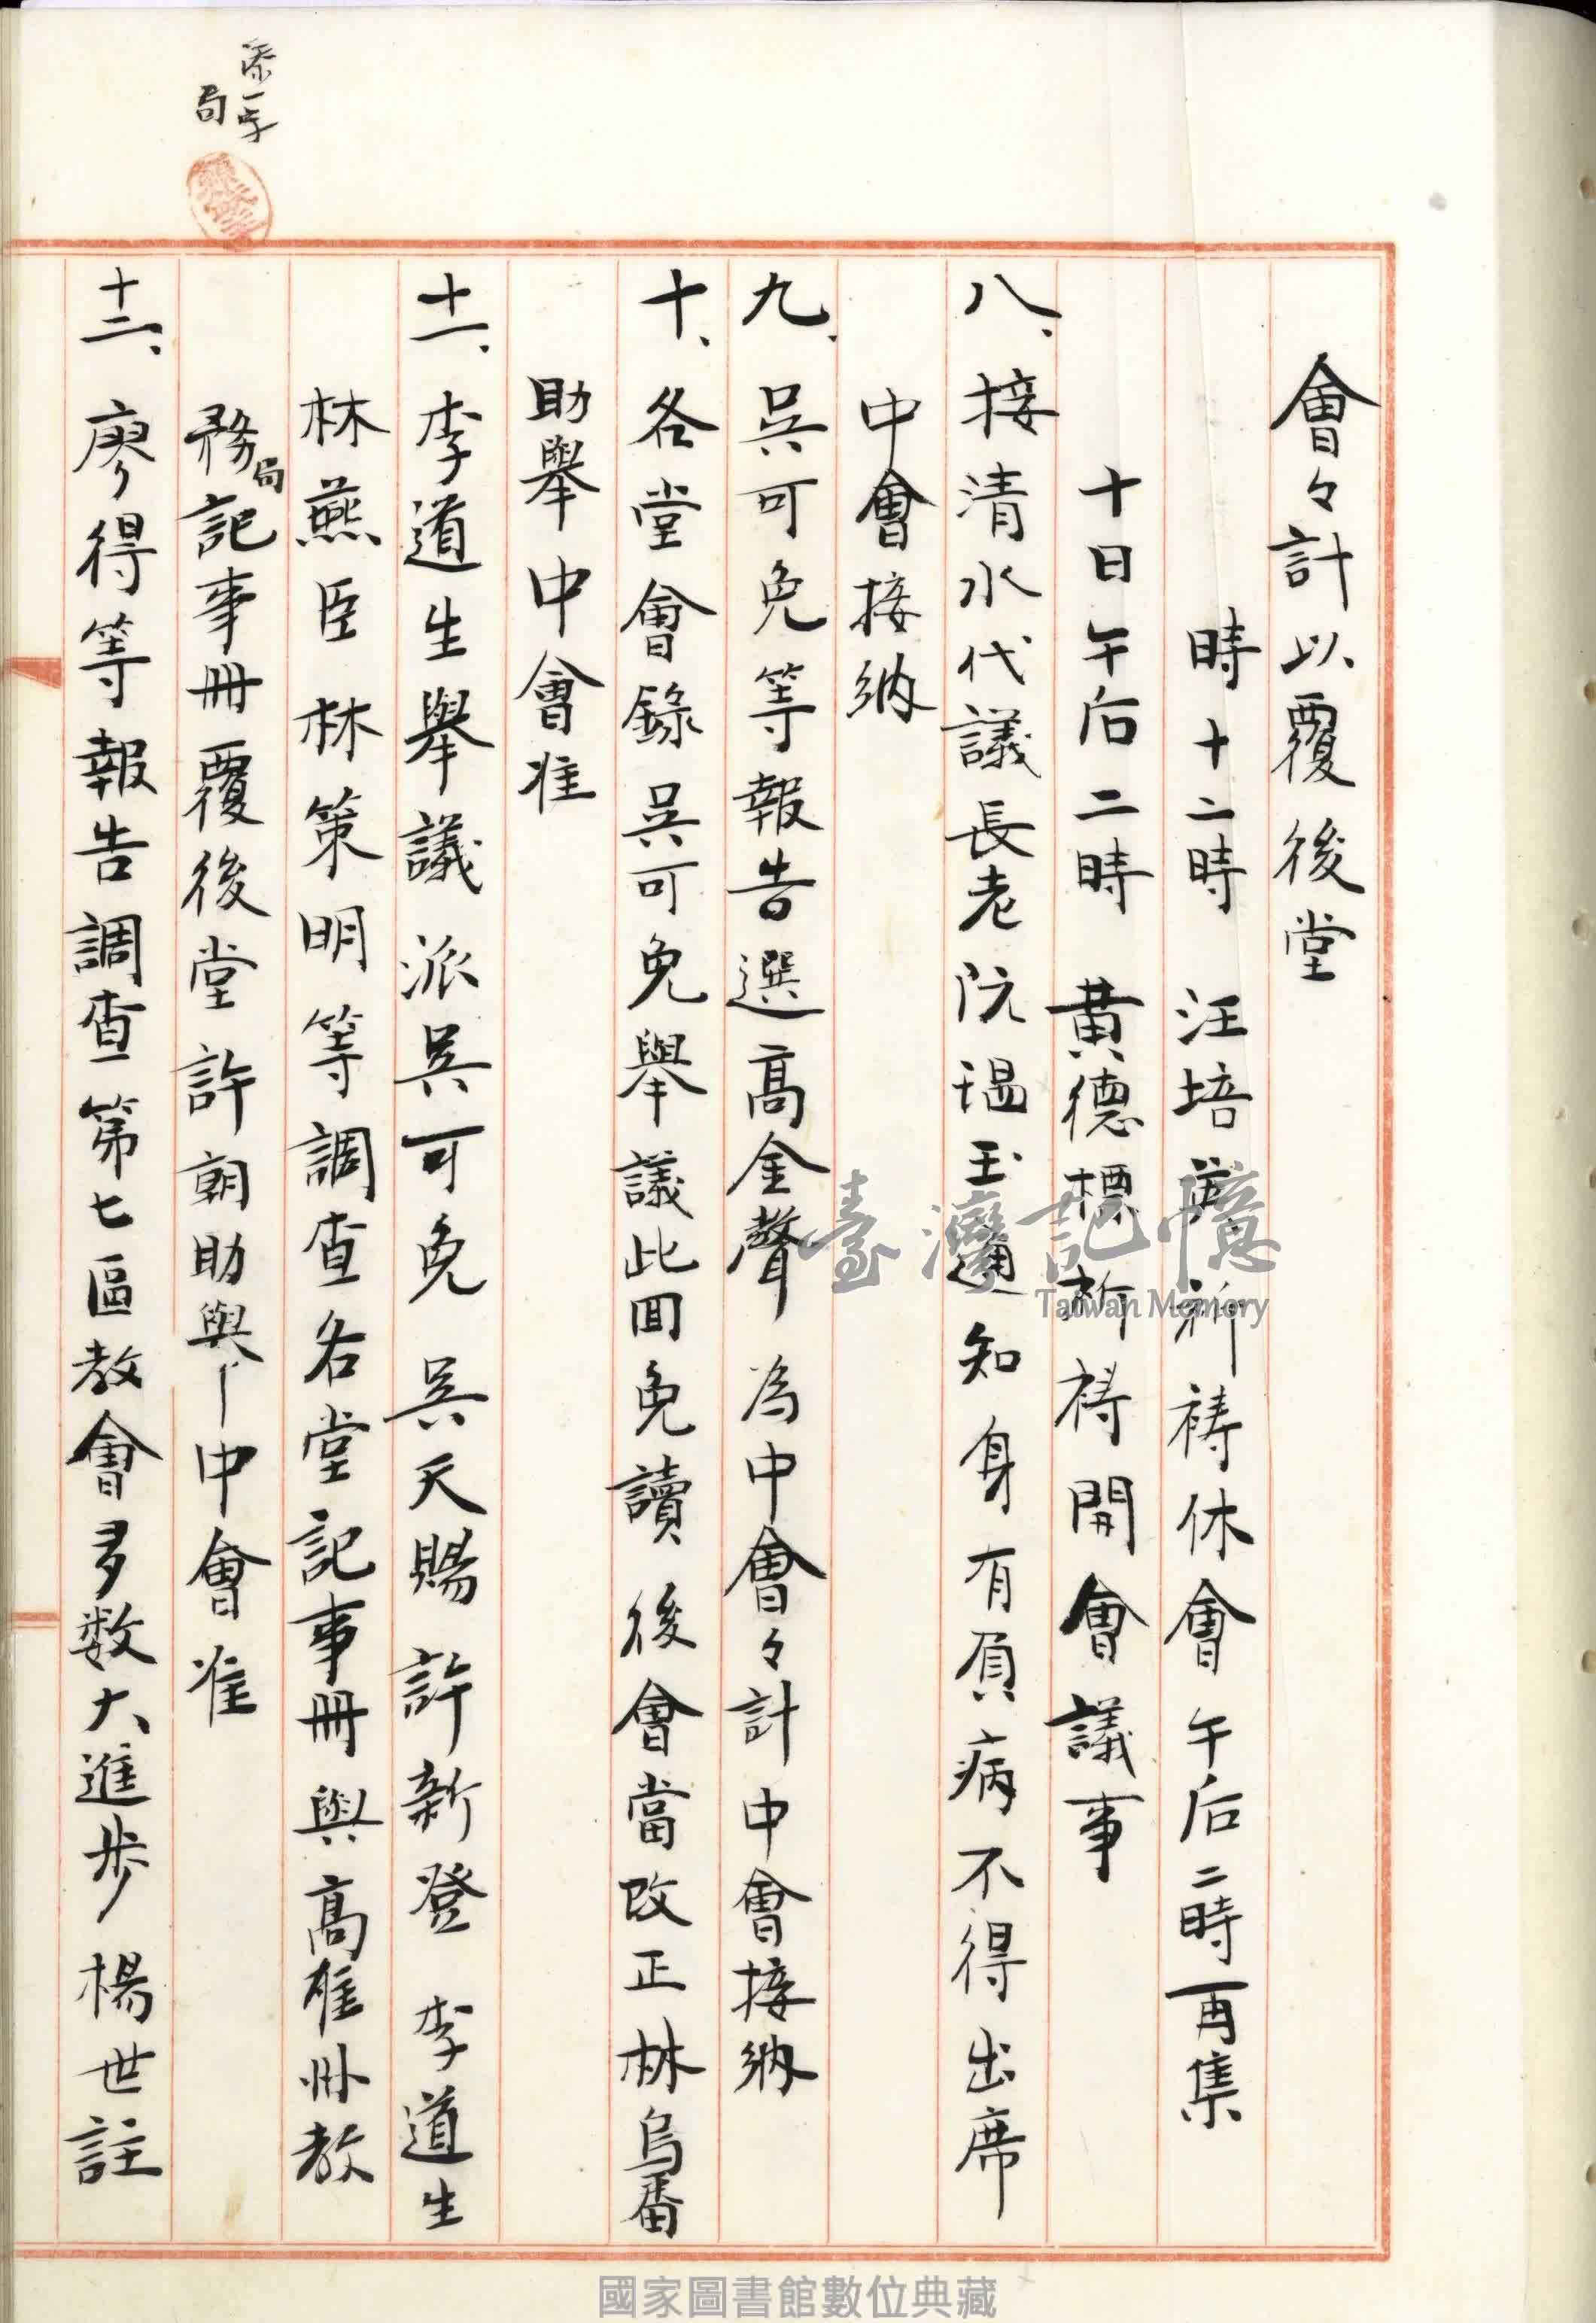 會々計以覆後堂
時十二時 汪培英祈禱休會午后二時再集
十日午后二時 黄德標祈禱開會議事
八、接清水代議長老阮瑥玉通知身有負病不得出席
中會接納
九、吳可免等報告選高金聲為中會々計中會接納
十、各堂會錄吳可免舉議此囬免讀後會當改正林烏番
助舉中會准
十一、李道生舉議派吳可免 吳天賜 許新登 李道生
林燕臣 林策明等調查各堂記事冊與高雄州教
務局記事冊覆後堂 許朝助與中會准
十二、廖得等報告調查第七區教會多数大進步 楊世註
添一字
局
臺灣記憶
Taiwan Memory
國家圖書館數位典藏